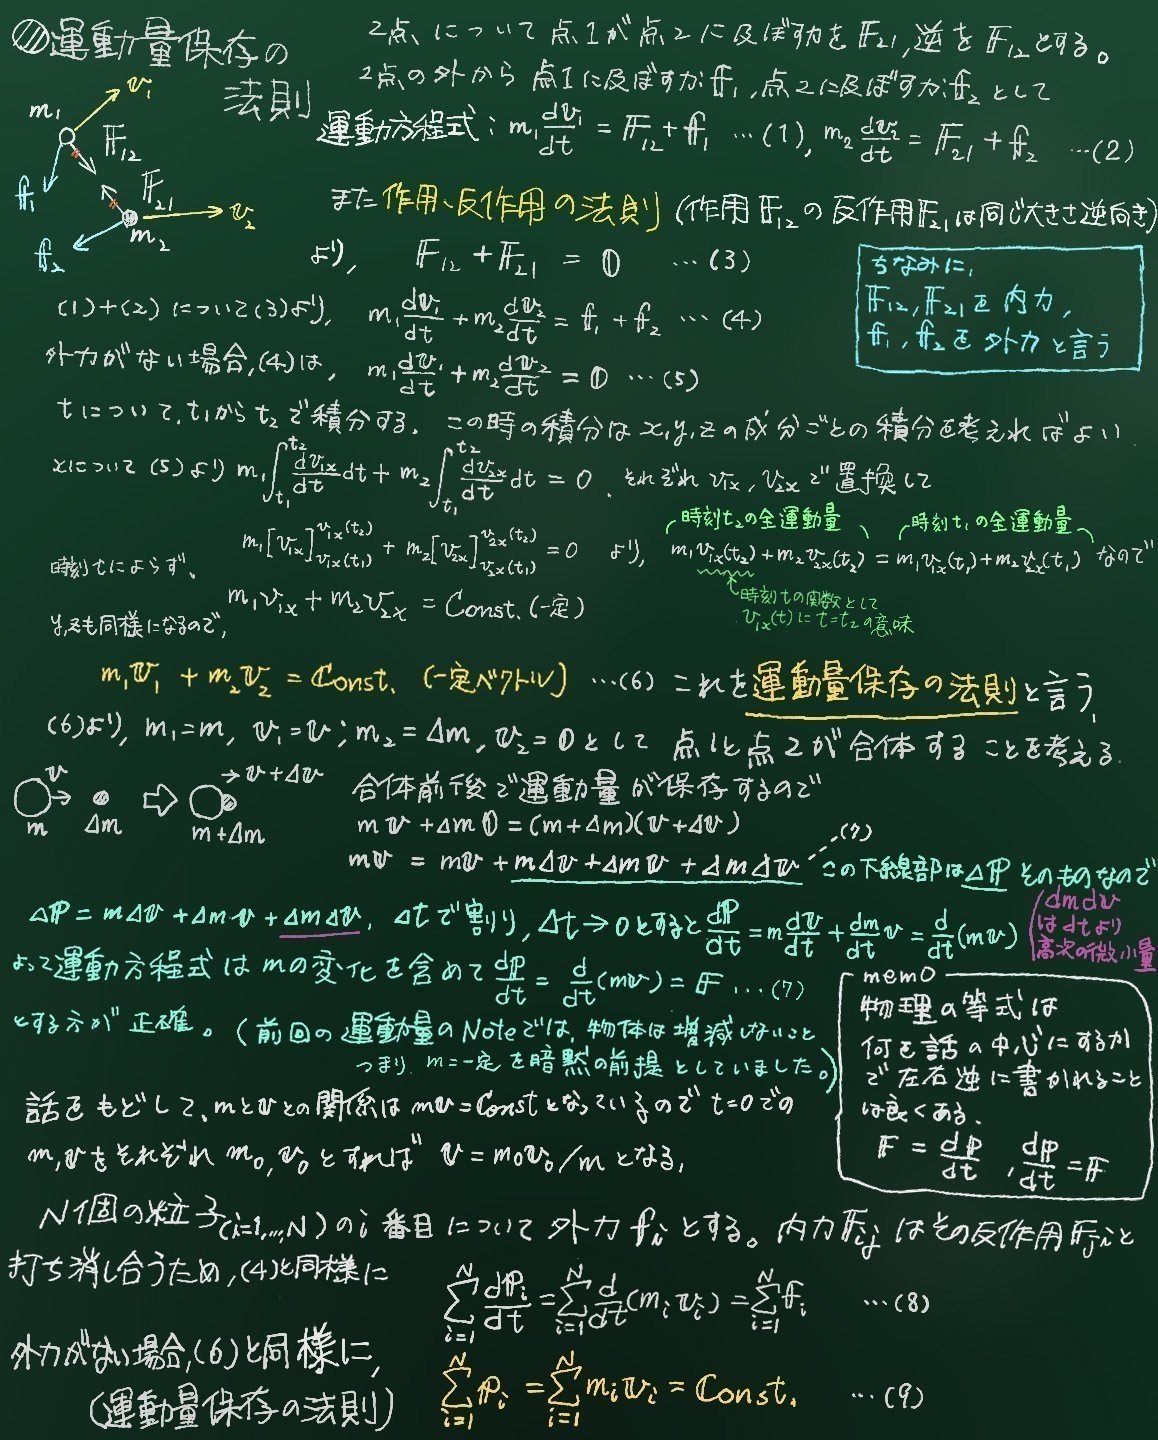 運動量保存の
法則
2点について点1が点2に及ぼす力を𝔽₂₁, 逆を𝔽₁₂とする。
2点の外から点1に及ぼす力𝕗₁, 点2に及ぼす力𝕗₂として
運動方程式: m₁d𝕧₁/dt = 𝔽₁₂+𝕗₁ …(1), m₂d𝕧₂/dt = 𝔽₂₁+𝕗₂ …(2)
m₁ 𝕧₁ 𝔽₁₂ 𝕗₁
𝔽₂₁ 𝕧₂ m₂ 𝕗₂
また作用・反作用の法則 (作用𝔽₁₂の反作用𝔽₂₁は同じ大きさ逆向き)
より, 𝔽₁₂+𝔽₂₁ = 𝟘 …(3)
ちなみに,
𝔽₁₂, 𝔽₂₁を内力,
𝕗₁, 𝕗₂を外力と言う
(1)+(2)について(3)より, m₁d𝕧₁/dt + m₂d𝕧₂/dt = 𝕗₁+𝕗₂ …(4)
外力がない場合, (4)は, m₁d𝕧₁/dt + m₂d𝕧₂/dt = 𝟘 …(5)
tについて, t₁からt₂で積分する。この時の積分はx,y,zの成分ごとの積分を考えればよい.
xについて(5)より m₁∫_{t₁}^{t₂} dv₁ₓ/dt dt + m₂∫_{t₁}^{t₂} dv₂ₓ/dt dt = 0. それぞれv₁ₓ, v₂ₓで置換して
時刻t₂の全運動量 時刻t₁の全運動量
m₁[v₁ₓ]_{v₁ₓ(t₁)}^{v₁ₓ(t₂)} + m₂[v₂ₓ]_{v₂ₓ(t₁)}^{v₂ₓ(t₂)} = 0 より, m₁v₁ₓ(t₂)+m₂v₂ₓ(t₂) = m₁v₁ₓ(t₁)+m₂v₂ₓ(t₁) なので
時刻tの関数として
v₁ₓ(t)にt=t₂の意味
時刻tによらず、
m₁v₁ₓ + m₂v₂ₓ = Const. (一定)
y,zも同様になるので,
m₁𝕧₁ + m₂𝕧₂ = ℂonst. (一定ベクトル) …(6) これを運動量保存の法則と言う.
(6)より, m₁=m, 𝕧₁=𝕧; m₂=Δm, 𝕧₂=𝟘として 点1と点2が合体することを考える.
𝕧 m Δm ⇨ 𝕧+Δ𝕧 m+Δm
合体前後で運動量が保存するので
m𝕧+Δm𝟘=(m+Δm)(𝕧+Δ𝕧)
m𝕧 = m𝕧+mΔ𝕧+Δm𝕧+ΔmΔ𝕧 …(7)
この下線部はΔℙそのものなので
Δℙ=mΔ𝕧+Δm𝕧+ΔmΔ𝕧, Δtで割り, Δt→0とするとdℙ/dt=m d𝕧/dt+dm/dt 𝕧=d/dt(m𝕧)
dmd𝕧
はdtより
高次の微小量
よって運動方程式はmの変化を含めて dℙ/dt = d/dt(m𝕧)=𝔽 …(7)
とする方が正確。(前回の運動量のNoteでは, 物体は増減しないこと
つまり, m=一定を暗黙の前提としていました。)
memo
物理の等式は
何を話の中心にするか
で左右逆に書かれること
は良くある.
𝔽=dℙ/dt , dℙ/dt=𝔽
話をもどして、mと𝕧との関係はm𝕧=ℂonstとなっているのでt=0での
m,𝕧をそれぞれm₀,𝕧₀とすれば 𝕧=m₀𝕧₀/mとなる.
N個の粒子(i=1,…,N)のi番目について外力𝕗ᵢとする。内力𝔽ᵢⱼはその反作用𝔽ⱼᵢと
打ち消し合うため, (4)と同様に
∑_{i=1}^{N} dℙᵢ/dt = ∑_{i=1}^{N} d/dt(mᵢ𝕧ᵢ) = ∑_{i=1}^{N} 𝕗ᵢ …(8)
外力がない場合, (6)と同様に,
(運動量保存の法則)
∑_{i=1}^{N} ℙᵢ = ∑_{i=1}^{N} mᵢ𝕧ᵢ = ℂonst. …(9)